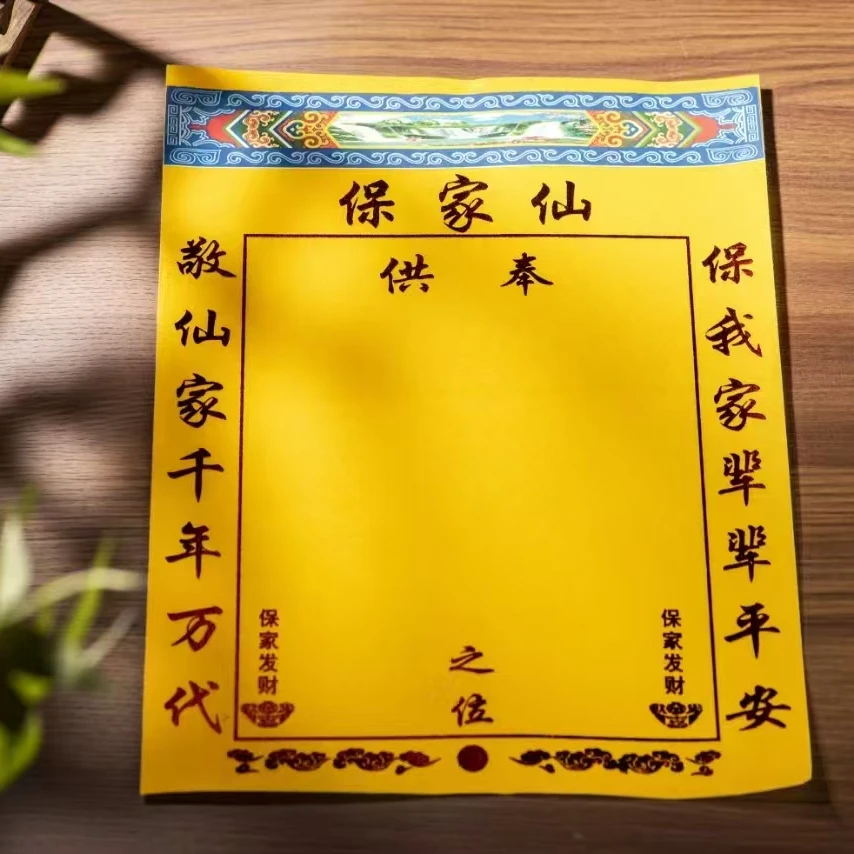 保家仙
供奉
保我家辈辈平安
敬仙家千年万代
保家发财
保家发财
之位